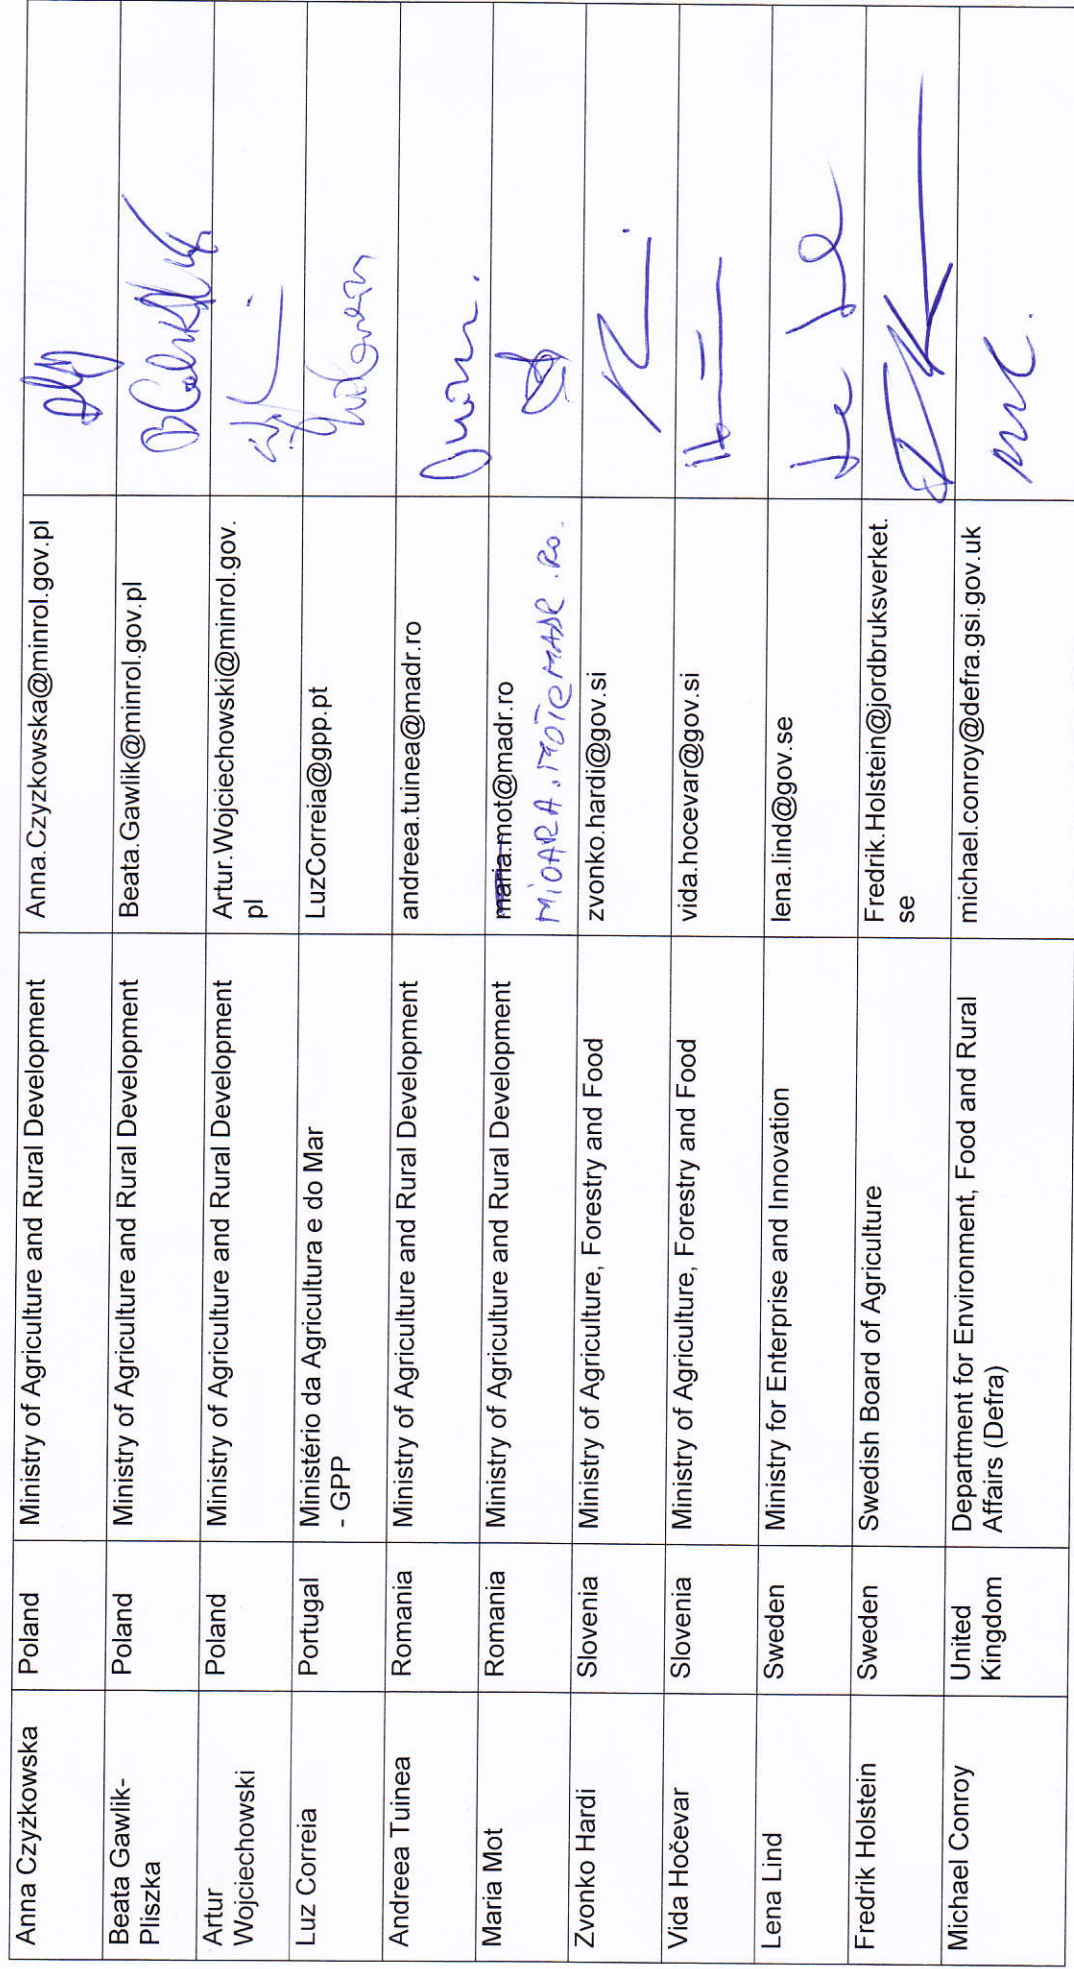 Anna Czyżkowska Poland Ministry of Agriculture and Rural Development Anna.Czyzkowska@minrol.gov.pl
Beata Gawlik- Poland Ministry of Agriculture and Rural Development Beata.Gawlik@minrol.gov.pl
Pliszka
Artur Poland Ministry of Agriculture and Rural Development Artur.Wojciechowski@minrol.gov.
Wojciechowski pl
Luz Correia Portugal Ministério da Agricultura e do Mar LuzCorreia@gpp.pt
- GPP
Andreea Tuinea Romania Ministry of Agriculture and Rural Development andreea.tuinea@madr.ro
Maria Mot Romania Ministry of Agriculture and Rural Development maria.mot@madr.ro
MIOARA.MOT@MADR.RO.
Zvonko Hardi Slovenia Ministry of Agriculture, Forestry and Food zvonko.hardi@gov.si
Vida Hočevar Slovenia Ministry of Agriculture, Forestry and Food vida.hocevar@gov.si
Lena Lind Sweden Ministry for Enterprise and Innovation lena.lind@gov.se
Fredrik Holstein Sweden Swedish Board of Agriculture Fredrik.Holstein@jordbruksverket.
se
Michael Conroy United Department for Environment, Food and Rural michael.conroy@defra.gsi.gov.uk
Kingdom Affairs (Defra)